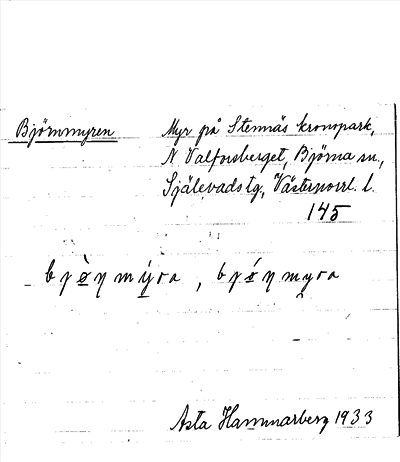 Björnmyren
Myr på Stennäs kronopark,
N Valforsberget, Björna sn,
Själevads tg, Västernorrl. l.
145
Asta Hammarberg 1933